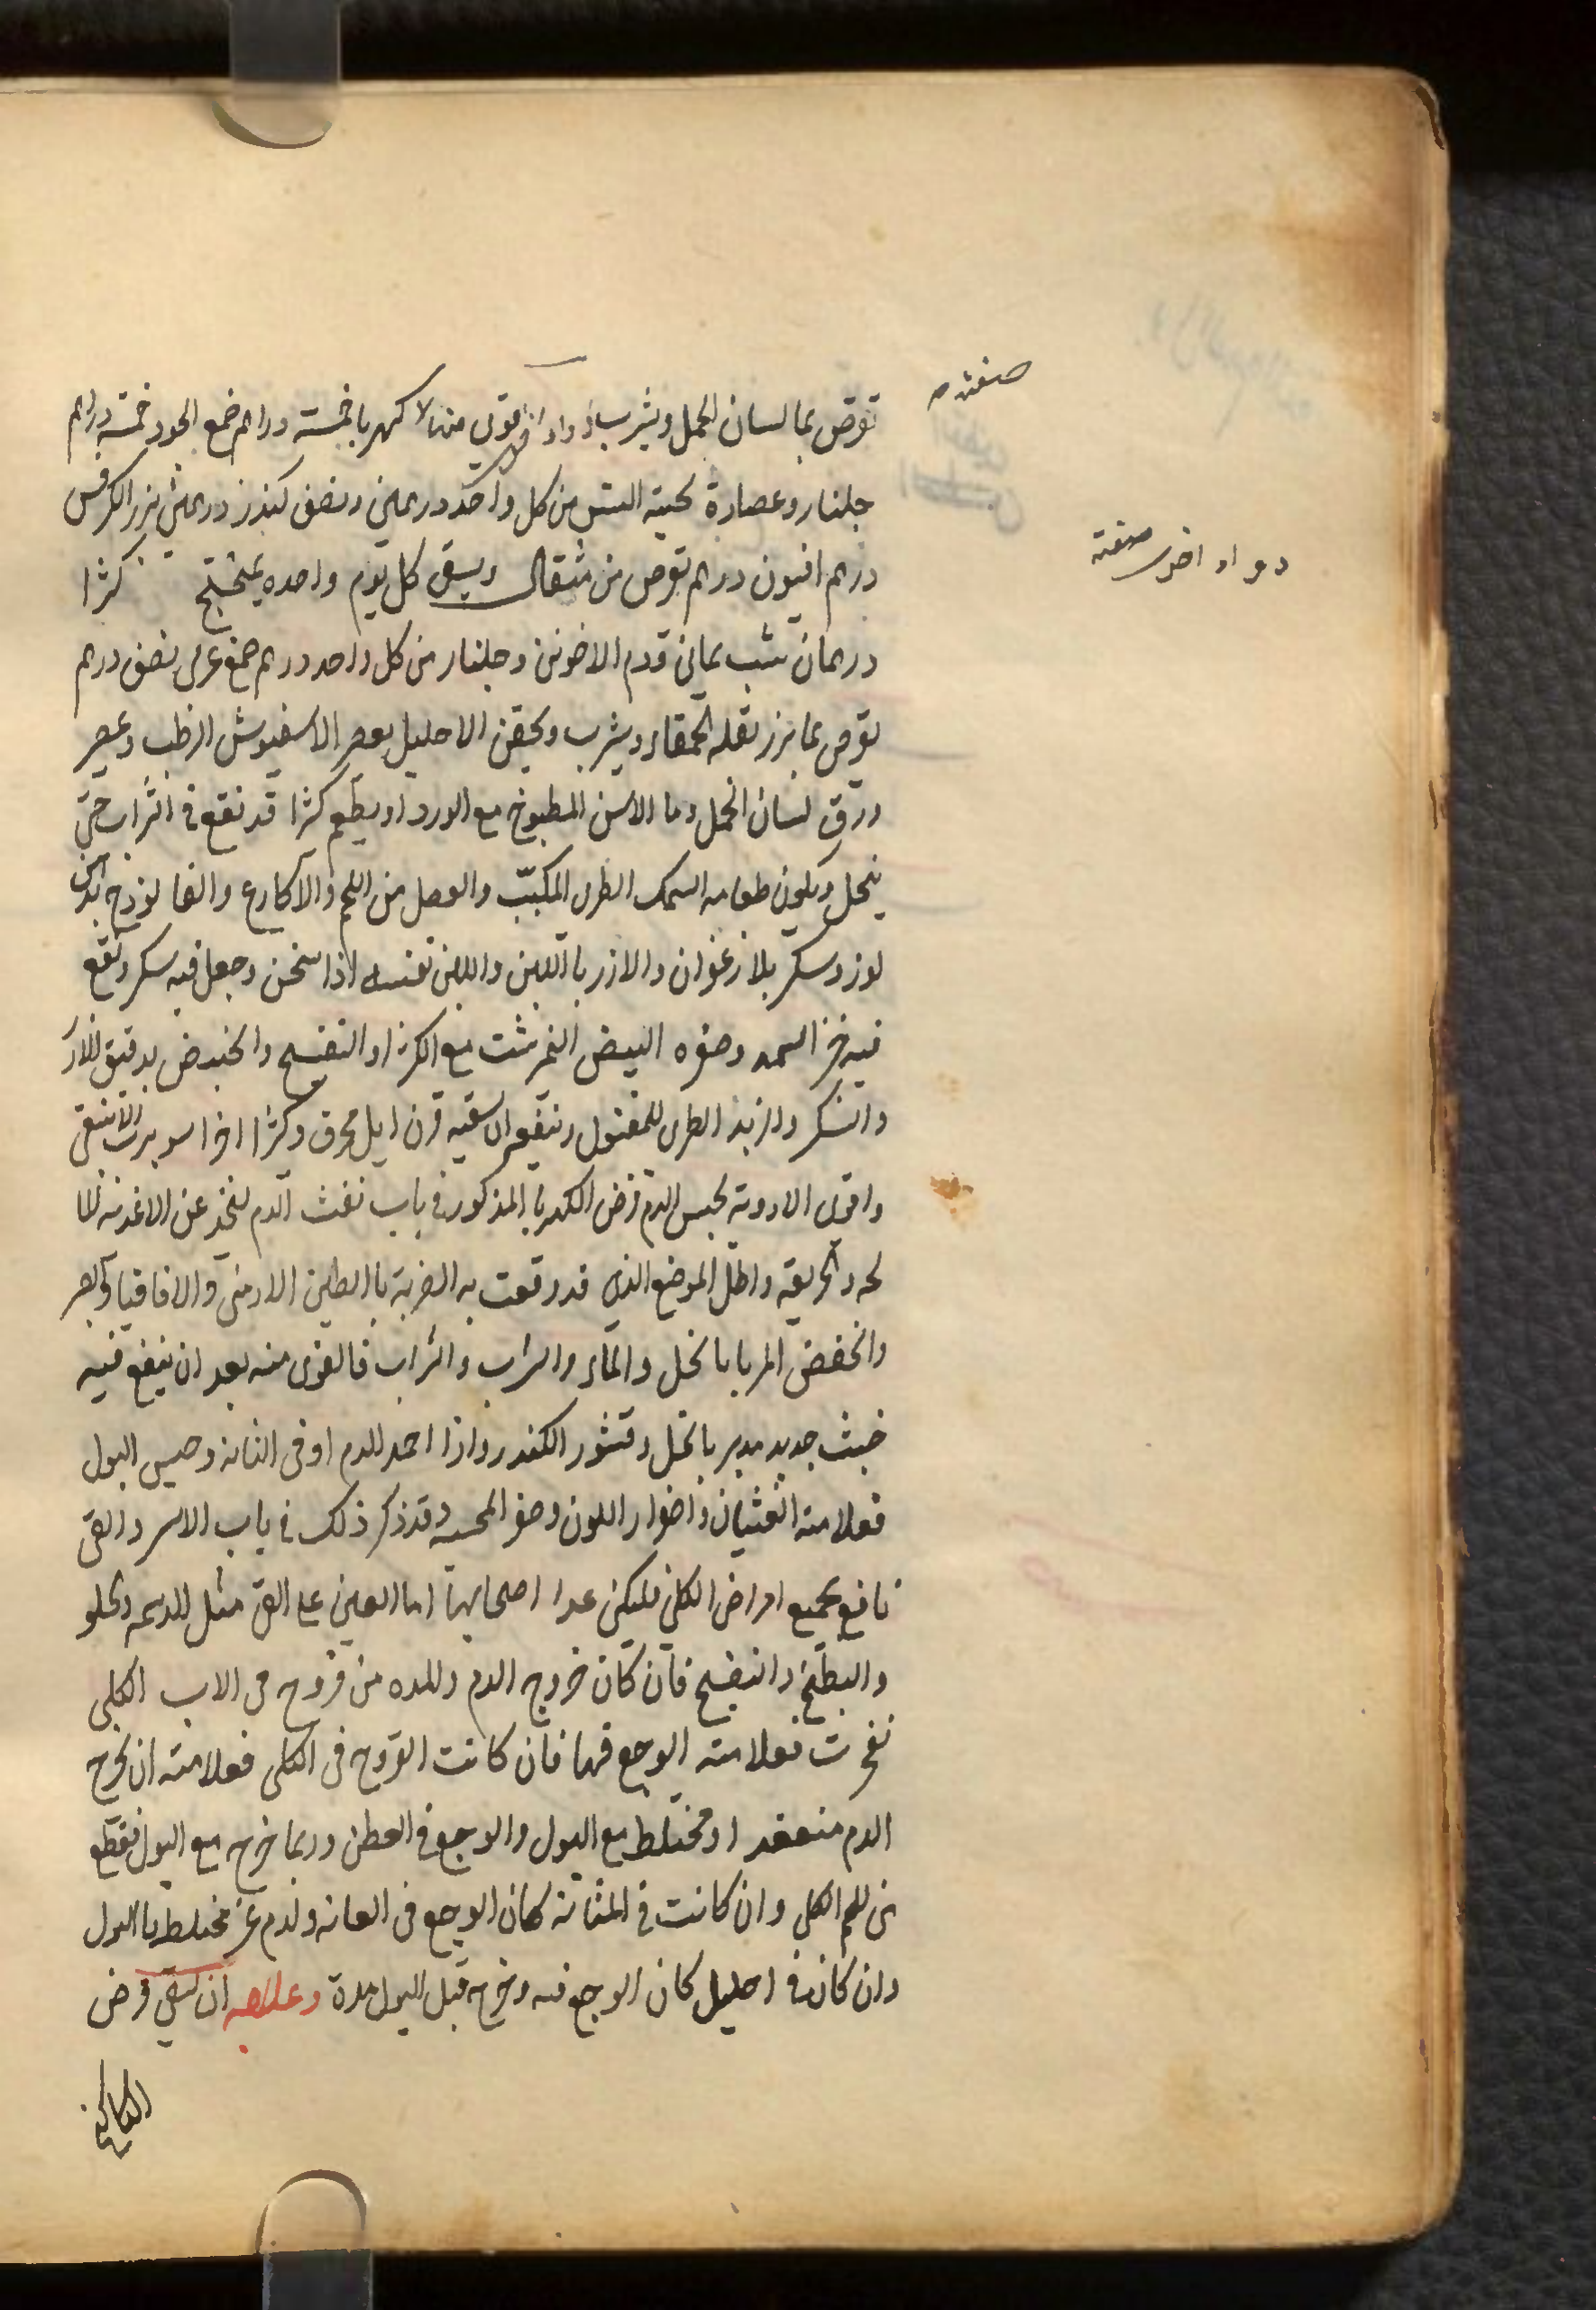 صفته
تقرص بما لسان الحمل ويشرب دواء اقوى من كهربا خمسة دراهم صمغ الجوز خمسة دراهم
جلنار وعصارة لحية التيس من كل واحد درهمين ونصف كندر درهمين بزر الكرفس
درهم افيون درهم تقرص من مثقال ويسقى كل يوم واحده بميفختج كثيرا
دواء اخر صفته
درهمان شب يماني ودم الاخوين وجلنار من كل واحد درهم صمغ عربى نصف درهم
تقرص بما بزر بقله الحمقاء ويشرب ويحقن الاحليل بعصر الاسفيوش الرطب وعصر
ورق لسان الحمل وما الاس المطبوخ مع الورد او يطعم كثيرا قد نقع في الشراب حتى
ينحل ويكون طعامه السمك الطرى المكبب والعضل من اللحم والاكارع والفالوذج بدهن
لوز وسكر بلا زعفران والارز باللبن واللبن نفسه اذا سخن وجعل فيه سكر ونقع
فيه خبز السميد وصفره البيض النمرشت مع الكثيرا او البنفسج والخبيص بدقيق الارز
والسكر والزبد الطرى المغسول وينفع ان يسقيه قرن ايل محرق وكثيرا اجزا سوا
واقوى الادوية لحبس الدم قرص الكهربا المذكور في باب نفث الدم عن الاغذيه
والحريفه واطل الموضع الذي قد وقعت به الضربة بالطين الارمنى والاقاقيا
والحضض المربا بالخل والماء والشراب والشراب فالقوى منه بعد ان ينقع فيه
خبث حديد مدبر بالخل وقشور الكندر واذا اجمد الدم او في المثانه وحبس البول
فعلامته الغثيان واصفرار اللون وصغر المجسه وقد ذكر ذلك في باب الاسر والقى
نافع لجميع امراض الكلى فليكن عند اصحابها اما العين على القى مثل
والبطيخ والبنفسج فان كان خروج الدم والمده من قروح في الكلى
فعلامته الوجع فيها فان كانت القروح في الكلى فعلامته ان يخرج
الدم منعقد او مختلط مع البول والوجع في القطن وربما خرج مع البول قطع
من لحم الكلى وان كانت في المثانة كان الوجع في العانه والدم غير مختلط بالبول
وان كان في احليل كان الوجع فيه وخرج قبل البول مدة وعلاجه ان يسقى قرص
الكاكنج